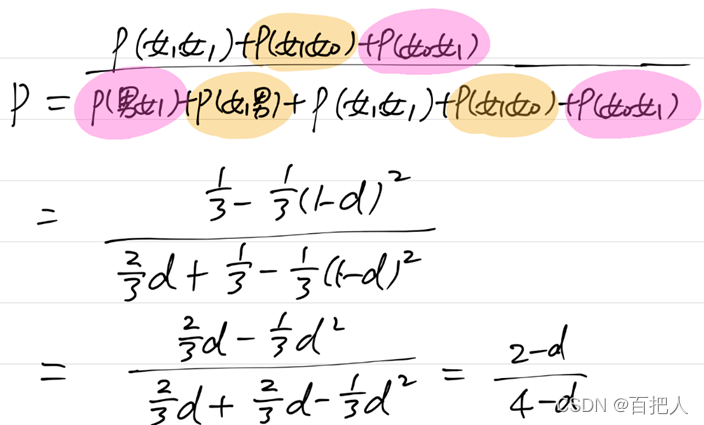 P = \frac{P(女₁女₁)+P(女₁女₀)+P(女₀女₁)}{P(男女₁)+P(女₁男)+P(女₁女₁)+P(女₁女₀)+P(女₀女₁)}
= \frac{\frac{1}{3}-\frac{1}{3}(1-d)^2}{\frac{2}{3}d+\frac{1}{3}-\frac{1}{3}(1-d)^2}
= \frac{\frac{2}{3}d-\frac{1}{3}d^2}{\frac{2}{3}d+\frac{2}{3}d-\frac{1}{3}d^2} = \frac{2-d}{4-d}
CSDN @百把人